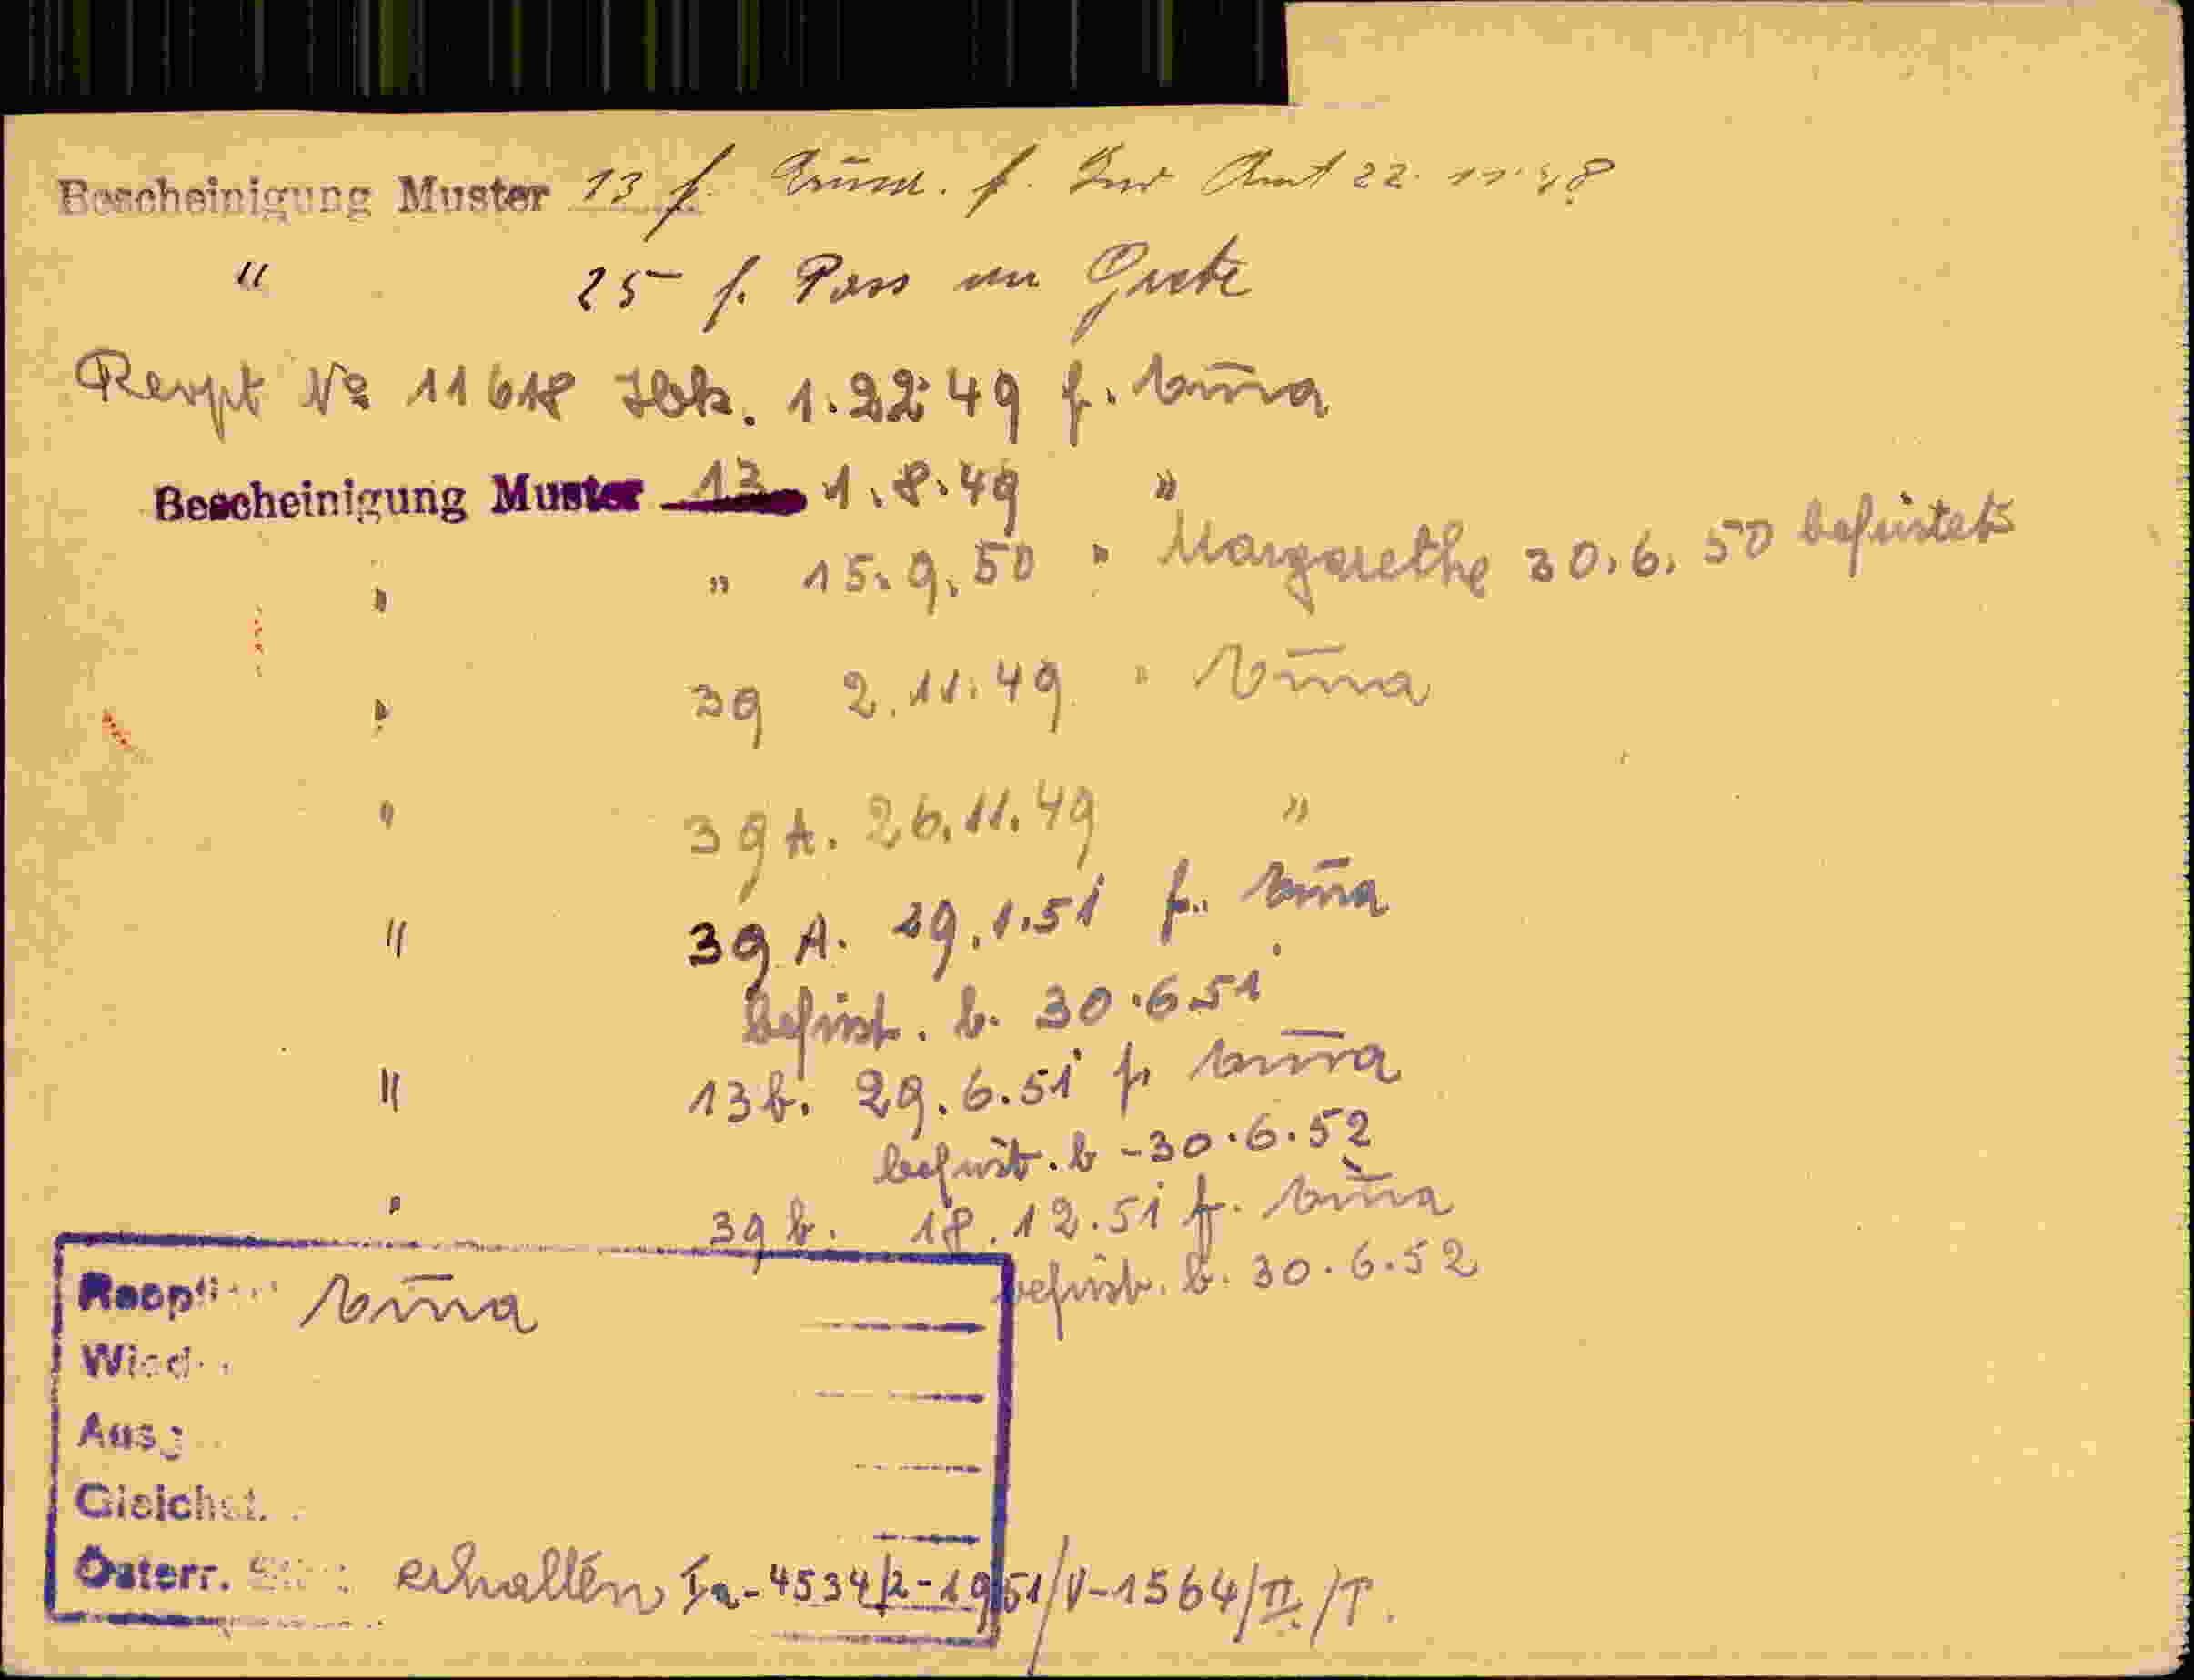 Bescheinigung Muster 13 f. f. Amt 22. 11. 48
" 25 f. Pass an Grete
Rcept № 11618 Ibk. 1.22.49 f. Anna
Bescheinigung Muster 13 1.8.49 "
" " 15.9.50 " Margarethe 30.6.50 befristet
" 39 2.11.49 " Anna
" 39 A. 26.11.49 "
" 39 A. 29.1.51 f. Anna
befrist. b. 30.6.51
" 13 b. 29.6.51 f. Anna
befrist. b - 30.6.52
" 39 b. 18.12.51 f. Anna
befrist. b. 30.6.52
Anna
Wied
Ausg
Gleichst.
Österr. erhalten Ia-4534/2-1951/V-1564/II/T.